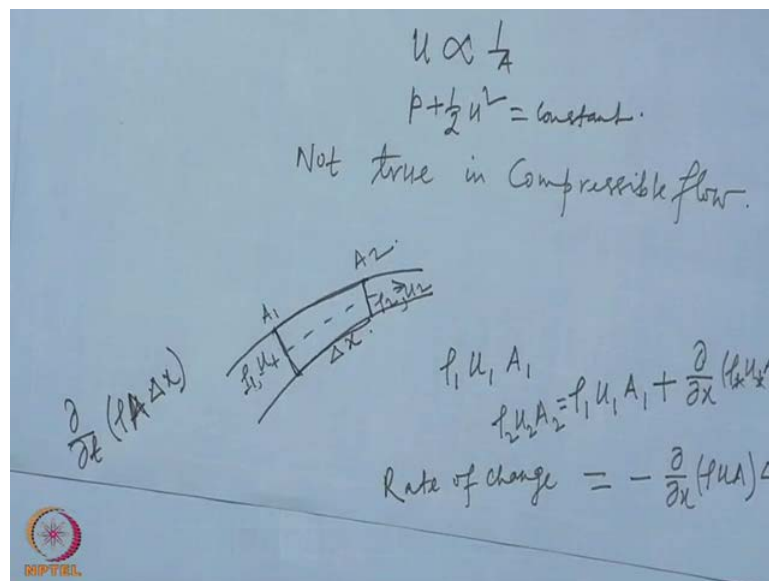 u ∝ 1/A
p + 1/2 u² = Constant.
Not true in Compressible flow.
A₁
A₂
ρ₁, u₁
ρ₂, u₂
Δx
∂/∂t (ρA Δx)
ρ₁ u₁ A₁
ρ₂u₂A₂ = ρ₁ u₁ A₁ + ∂/∂x (ρ₁u₁A
Rate of change = - ∂/∂x (ρuA) Δ
NPTEL